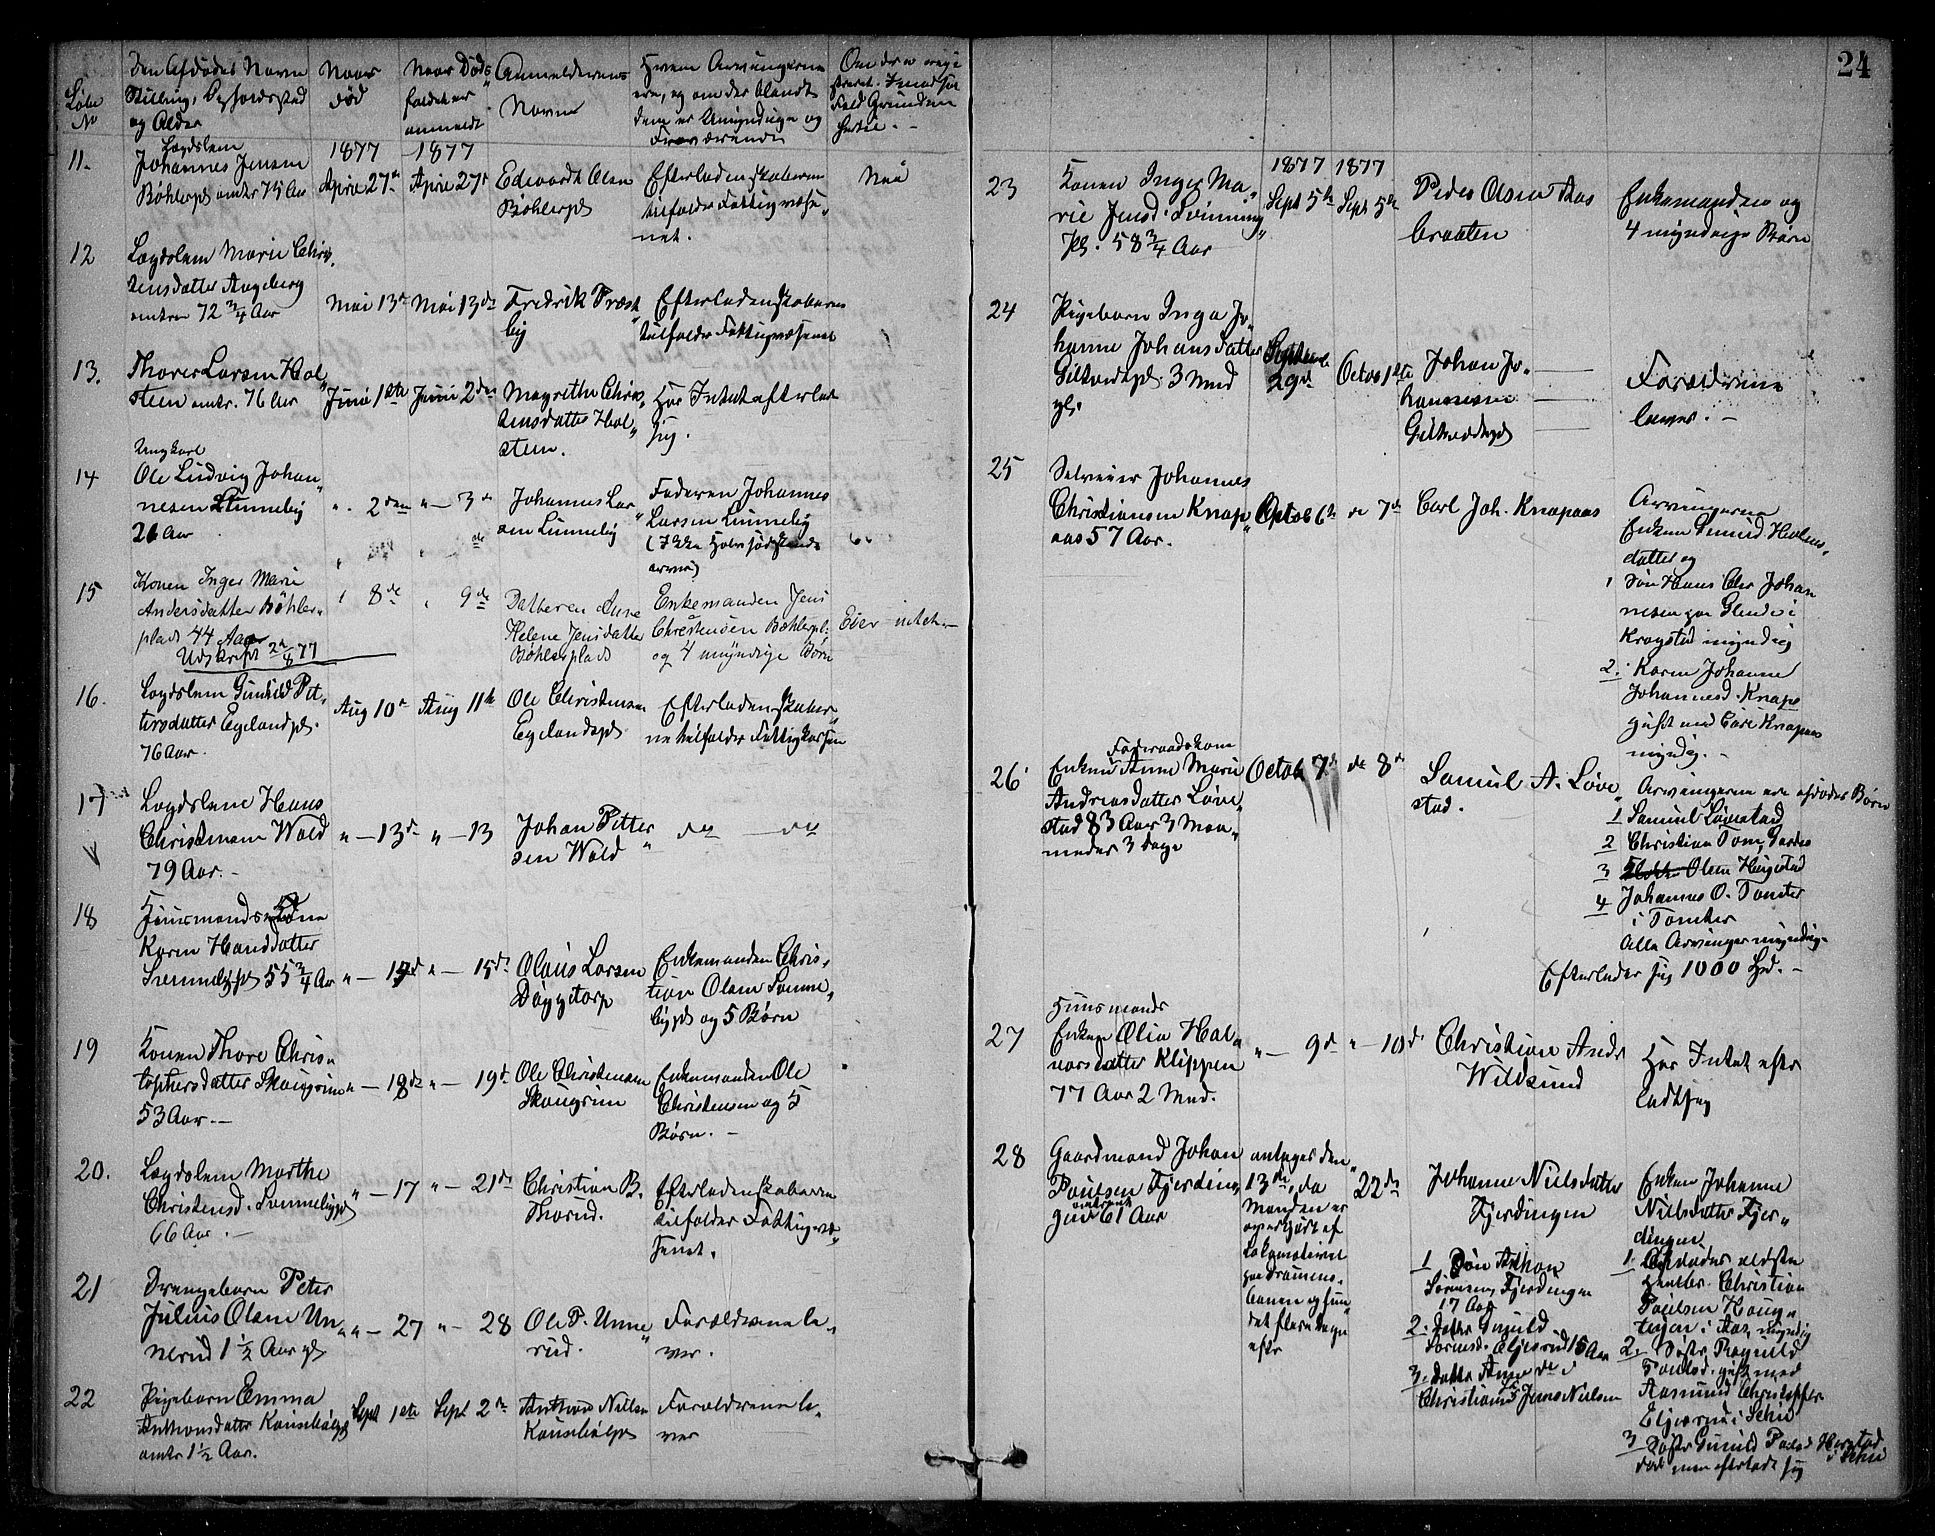 24
Løbe
No
Den Afdødes Navn
Stilling, Opholdssted
og Alder
Naar
død
Naar Døds
faldet er
anmeldt
Anmelderens
Navn
Hvem Arvingerne
ere, og om der blandt
dem er Umyndige og
Fraværende
Om der er
Fald Grunden
hertil. -
11.
Lægdslem
Johannes Jensen
Bøhlerpl omtr 75 Aar
1877
April 27de
1877
April 27de
Edvardt Olsen
Bøhlerpl
Efterladenskaberne
tilfalder Fattigvæse„
net.
Nei
12
Lægdslem Marie Chris„
tensdatter Angeberg
omtren 72 3/4 Aar
Mai 13de
Mai 13de
Fredrik Præst„
by
Efterladenskaberne
tilfalder Fattigvæsenet
13.
Thorer Larsen Hol„
steen omtr. 76 Aar
Juni 1ste
Juni 2den
Magrethe Chris„
tensdatter Hol„
steen.
Har Intet efterladt
sig.
14
Ungkarl
Ole Ludvig Johan„
nesen Limneby
26 Aar
„ 2den
„ — 3de
Johannes Lar„
sen Limneby
Faderen Johannes
Larsen Limneby
15
Konen Inger Marie
Andersdatter Bøhler„
plads 44 Aar
Udskrift 2/8 77
„ 8de
„ 9de
Datteren Anne
Helene Jensdatter
Bøhlerplads
Enkemanden Jens
Christensen Bøhlerpl.
og 4 myndige Børn
Eier intet.-
16.
Lægdslem Gunhild Pet„
tersdatter Egelandpl.
76 Aar.
Aug 10de
Aug 11te
Ole Christensen
Egelandspl.
Efterladenskaber„
ne tilfalder Fattigkassen
17
Lægdslem Hans
Christensen Wold
79 Aar. -
„ — 13de
„ — 13
Johan Petter„
sen Wold
do — do
18
Huusmandskone
Karen Hansdatter
55 3/4 Aar
„ —
„ — 15de
Olaus Larsen
Døggetorp
Enkemanden Chris„
tian Olsen
og 5 Børn
19
Konen Thore Chris„
tophersdatter Skougrim
53 Aar. -
„ — 18de
„ — 19de
Ole Christensen
Skougrim
Enkemanden Ole
Christensen og 5
Børn. -
20.
Lægdslem Marthe
Christensd.
66 Aar. -
„ — 17
„ — 21de
Christian B.
Thorud.
Efterladenskaberne
tilfalder Fattigvæ„
senet.
21
Drengebarn Peter
Julius Olsen Un„
nerud 1 1/2 Aar gl
„ — 27
„ — 28
Ole P. Unne„
rud.
Forældrene le„
ver.
22
Pigebarn Emma
Anthonsdatter
omtr 1 1/2 Aar.
Sept 1ste
Sept 2den
Anthon Nilsen
Forældrene le„
ver
23
Konen Inger Ma„
rie Jensd. Svinning„
pl. 58 3/4 Aar
1877
Sept 5te
1877
Sept 5te
Peder Olsen Aas
braaten
Enkemanden og
4 myndige Børn
24
Pigebarn Inga Jo„
hanne Johansdatter
3 Mnd
gl.
29de
Octob 1ste
Johan Jo„
hannesen
Forældrene
lever. -
25
Selveier Johannes
Christiansen Knap„
aas 57 Aar.
Octob 6te
„ 7de
Carl Joh. Knapaas
Arvingerne
Enken
datter og
1 Søn Hans Chr Johan
nesen paa
Kragstad myndig
2. Karen Johanne
Johannesd. Knap
gift med Carl Knapaas
myndig. -
26
Foderaadskone
Enken Anne Marie
Andreasdatter Løve„
stad 83 Aar 3 Maa„
neder 3 dage
Octob 7de
de 8de
Samuel A. Løve„
stad.
Arvingerne ere afdødes Børn
1 Samuel Løvestad
2 Christian
3 Olsen
4 Johannes O. Tomter
i Tomter
Alle Arvinger myndig-
Efterlader sig 1000 Spd. -
27
Huusmands
Enken Olia Hal„
vorsdatter Klippen
77 Aar 2 Mnd.
„ — 9de
„ — 10de
Christian Andr
Wildsund
Har Intet efter
ladt sig
28
Gaardmand Johan
Poulsen Fjerdin„
gen omtrent 61 Aar
antages den
13de, da
Manden er
overkjørt af
Lokomotivet
paa Dramens„
banen og fun„
det flere Dage
efter
22de
Johanne Nielsdatter
Fjerdingen
1 Søn Anthon
Sørensen Fjerdingen
17 Aar
2. Datter
15 Aar
3. Datter
Christian Jens Nielsen
Enken Johanne
Nielsdatter Fjer„
dingen.
1. Afdødes
Christian
Poulsen
i Aas, myndig
2.
gift med
Aasmund Christopher
i Schie
3
i Schie
død men efterlod sig